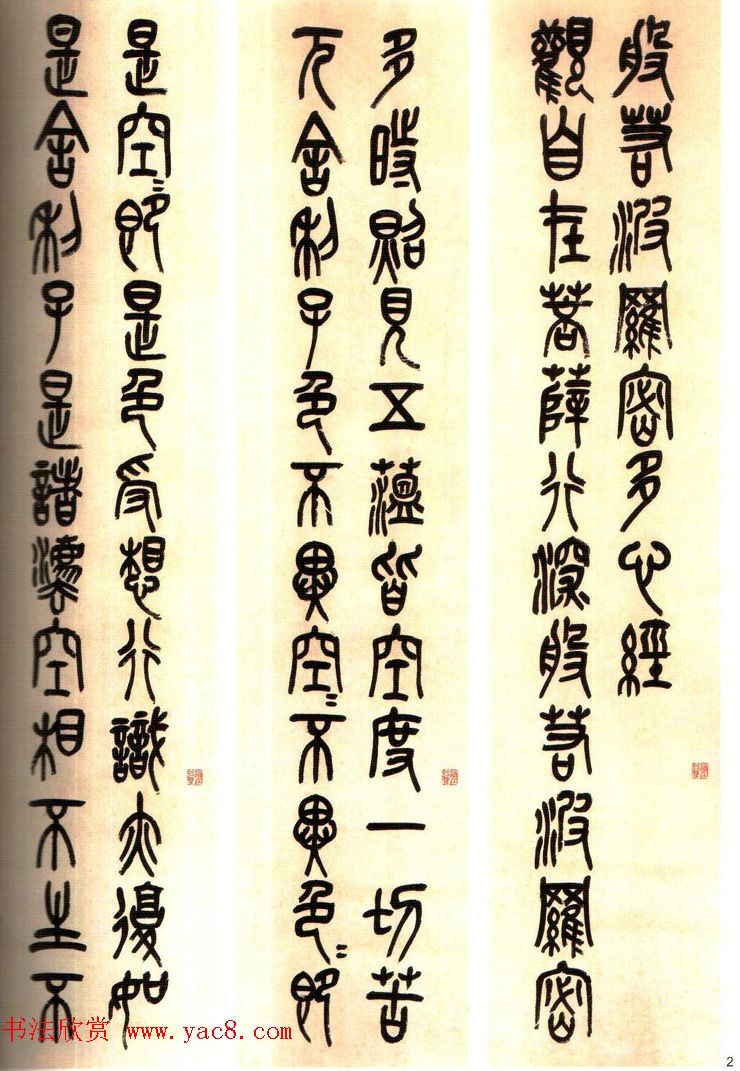 般若波羅密多心經
觀自在菩薩行深般若波羅密
多時照見五蘊皆空度一切苦
厄舍利子色不異空〻不異色〻即
是空〻即是色受想行識亦復如
是舍利子是諸灋空相不生不
书法欣赏 www.yac8.com
2